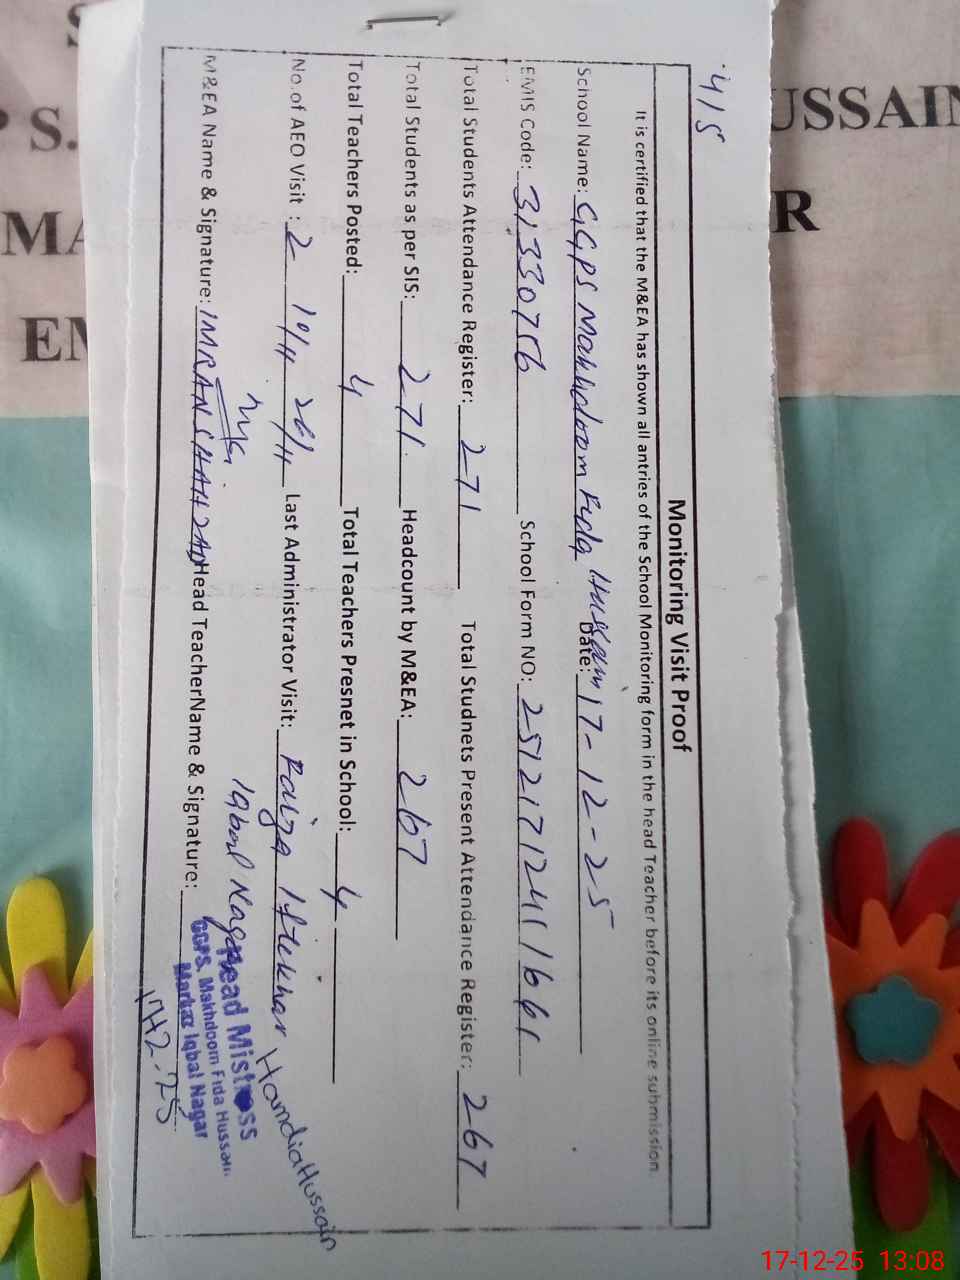 415
Monitoring Visit Proof
It is certified that the M&EA has shown all antries of the School Monitoring form in the head Teacher before its online submission.
School Name: GGPS Makhdoom Fida Hussain Date: 17-12-25
EMIS Code: 31330756 School Form NO: 251217124111661
Total Students Attendance Register: 271 Total Studnets Present Attendance Register: 267
Total Students as per SIS: 271 Headcount by M&EA: 267
Total Teachers Posted: 4 Total Teachers Presnet in School: 4
No.of AEO Visit : 2 10/11 26/11 Last Administrator Visit: Faiza Iftekhar
Iqbal Nagar
Hamdia Hussain
M&EA Name & Signature: IMRAN SHAHZAD Head TeacherName & Signature:
Head Mistress
GGPS. Makhdoom Fida Hussain
Markaz Iqbal Nagar
17-12-25
USSAIN
P S.
MA
R
EM
17-12-25 13:08